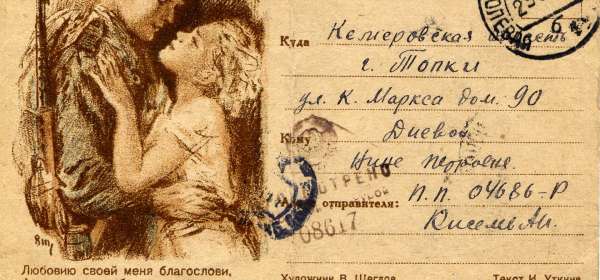 Куда Кемеровская область
г. Топки
ул. К. Маркса дом. 90
Кому
Нине Петровне
отправителя: П.П. 04686-Р
08617
Любовию своей меня благослови,
Художник В. Щеглов Текст И. Уткина